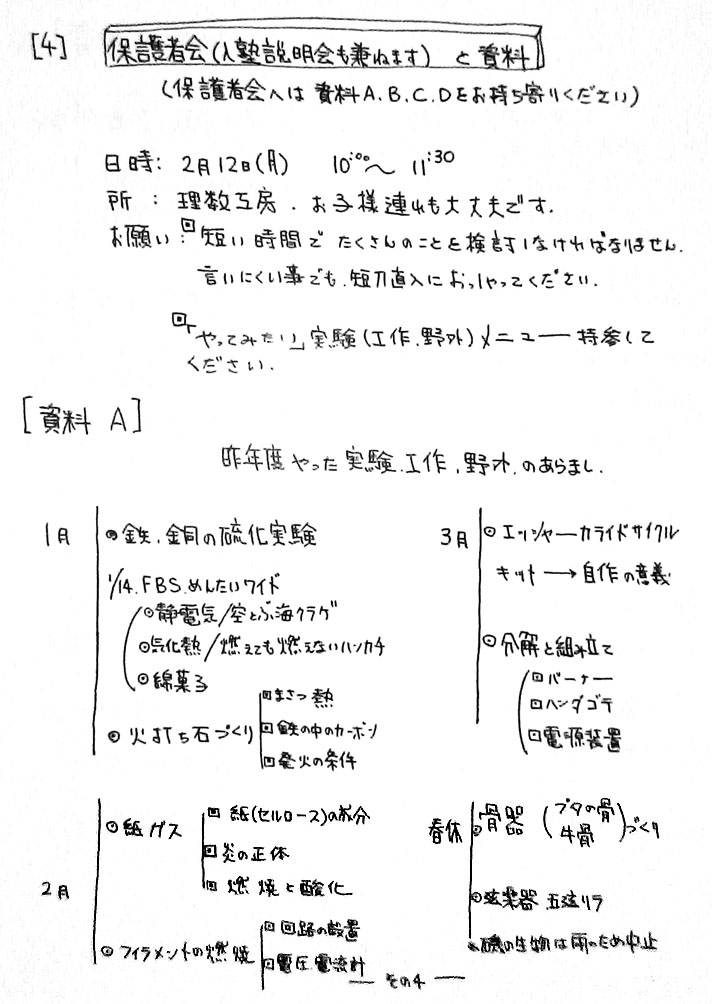 [4] 保護者会(入塾説明会も兼ねます) と 資料
(保護者会へは 資料A.B.C.Dをお持ち寄りください)
日時: 2月12日(月) 10:00〜 11:30
所 : 理数工房. お子様連れも大丈夫です.
お願い: 回 短い時間で たくさんのことを検討しなければなりません.
言いにくい事でも.短刀直入におっしゃってください.
回「やってみたい」実験(工作.野外)メニュー 持参して
ください.
[資料 A]
昨年度 やった 実験.工作.野外.のあらまし.
1月
⊙鉄.銅の硫化実験
1/14.FBS.めんたいワイド
⊙静電気/空とぶ海クラゲ
⊙気化熱/燃えても燃えないハンカチ
⊙綿菓子
⊙火打ち石づくり
回まさつ熱
回鉄の中のカーボン
回発火の条件
2月
⊙紙ガス
回 紙(セルロース)の成分
回炎の正体
回 燃焼と酸化
⊙フィラメントの燃焼
回回路の設置
回電圧電流計
3月
⊙エッシャーカライドサイクル
キット→自作の意義
⊙分解と組み立て
回バーナー
回ハンダゴテ
回電源装置
春休
⊙骨器 (ブタの骨 牛骨)づくり
⊙弦楽器 五弦リラ
⊙磯の生物は雨のため中止
— その4 —